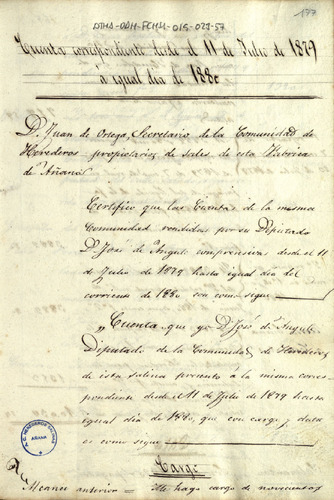 ATHA-DAH-FCHH-015-029-57
177
Cuenta correspondiente desde el 11 de Julio de 1879
a igual dia de 1880
D. Juan de Ortega, Secretario de la Comunidad de
Herederos propietarios de sales de esta Fabrica
de Añana
Certifico que las Cuentas de la misma
Comunidad rendidas por su Diputado
D. José de Angulo comprensivas desde el 11
de Julio de 1879 hasta igual dia del
corriente de 1880 son como sigue
"Cuenta que yo D. José de Angulo
Diputado de la Comunidad de Herederos
de esta salina presento a la misma corres-
pondiente desde el 11 de Julio de 1879 hasta
igual dia de 1880, que con cargo y data
es como sigue
Cargo
Alcance anterior = Me hago cargo de novecientos
AÑANA